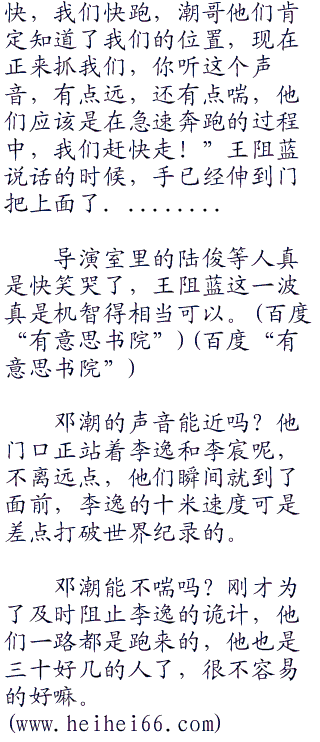 快，我们快跑，潮哥他们肯
定知道了我们的位置，现在
正来抓我们，你听这个声
音，有点远，还有点喘，他
们应该是在急速奔跑的过程
中，我们赶快走！”王阻蓝
说话的时候，手已经伸到门
把上面了．........
导演室里的陆俊等人真
是快笑哭了，王阻蓝这一波
真是机智得相当可以。(百度
“有意思书院”)(百度“有
意思书院”)
邓潮的声音能近吗？他
门口正站着李逸和李宸呢，
不离远点，他们瞬间就到了
面前，李逸的十米速度可是
差点打破世界纪录的。
邓潮能不喘吗？刚才为
了及时阻止李逸的诡计，他
们一路都是跑来的，他也是
三十好几的人了，很不容易
的好嘛。
(www.heihei66.com)